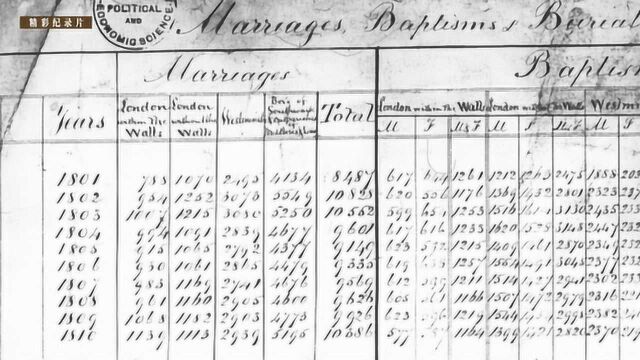 精彩纪录片
POLITICAL
AND
ECONOMIC SCIENCE
Marriages, Baptisms & Burial
Marriages Baptis
Years London within the Walls London without the Walls Westminster Total London within the Walls London without the Walls Westm
M F M&F M F M&F M F
1801 788 1070 2495 4134 8487 617 644 1261 1212 1263 2475 1888 203
1802 954 1252 3073 5549 10828 620 556 1176 1369 1432 2801 2323 237
1803 1007 1215 3080 5250 10552 599 654 1253 1516 1614 3130 2435 233
1804 994 1091 2839 4677 9601 617 616 1233 1620 1528 3148 2447 232
1805 915 1065 2792 4377 9149 623 592 1215 1409 1461 2870 2349 232
1806 930 1061 2865 4479 9335 619 638 1257 1554 1491 3045 2377 232
1807 983 1169 2741 4676 9569 612 599 1211 1514 1427 2941 2302
1808 961 1160 2905 4600 9626 605 561 1166 1507 1472 2979 2316 221
1809 1068 1182 2903 4773 9926 623 596 1219 1544 1454 2998 2382
1810 1139 1113 2939 5195 10386 577 587 1164 1399 1421 2820 2370